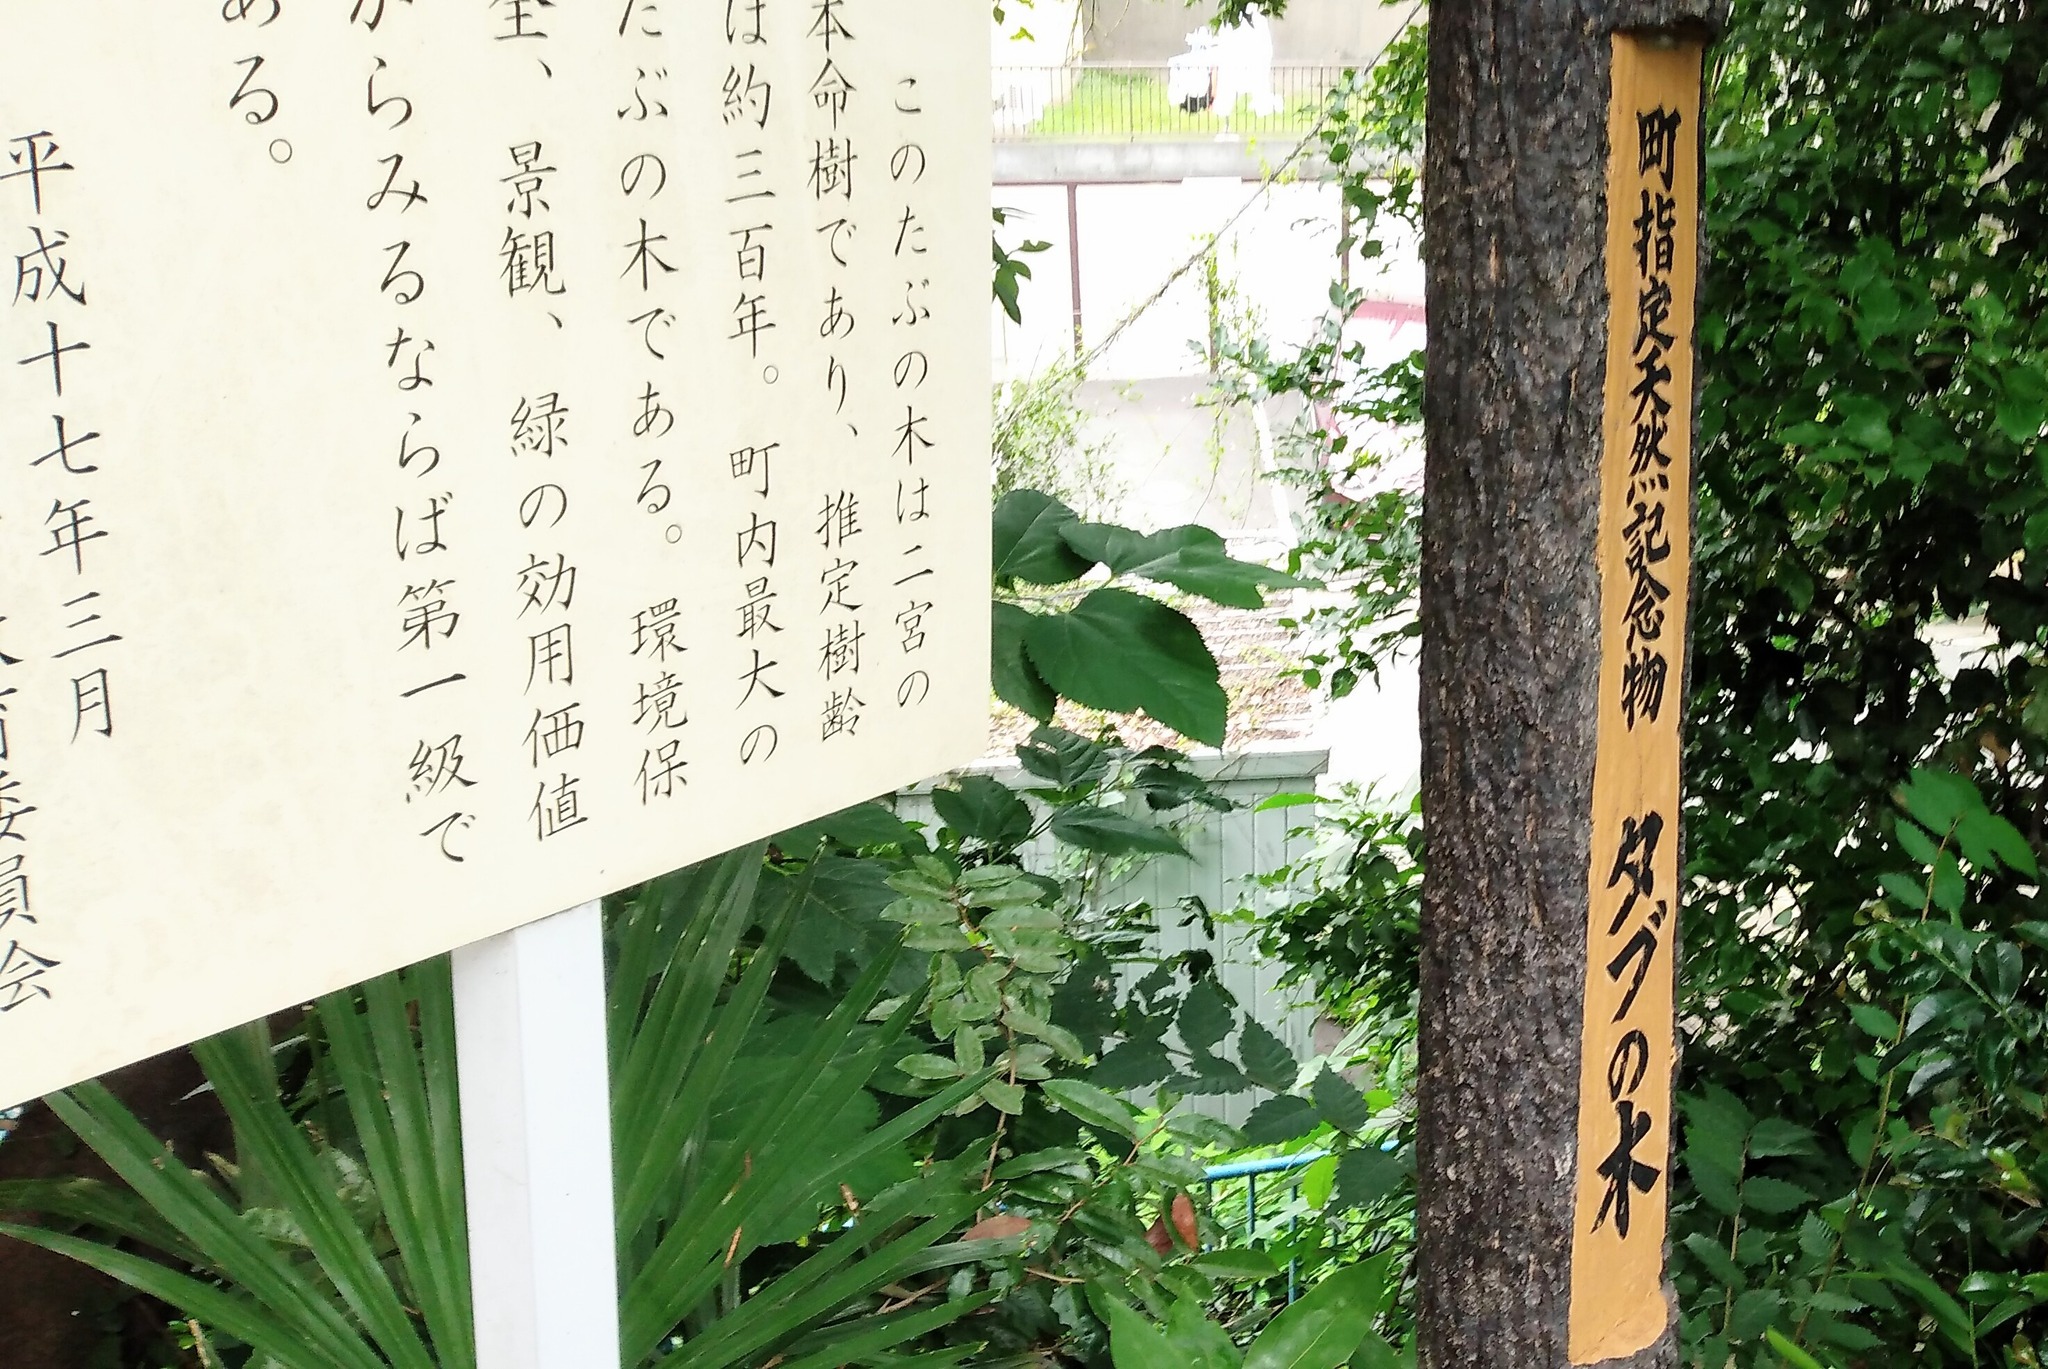 町指定天然記念物 タブの木
このたぶの木は二宮の
本命樹であり、推定樹齢
は約三百年。町内最大の
たぶの木である。環境保
全、景観、緑の効用価値
からみるならば第一級で
ある。
平成十七年三月
委員会